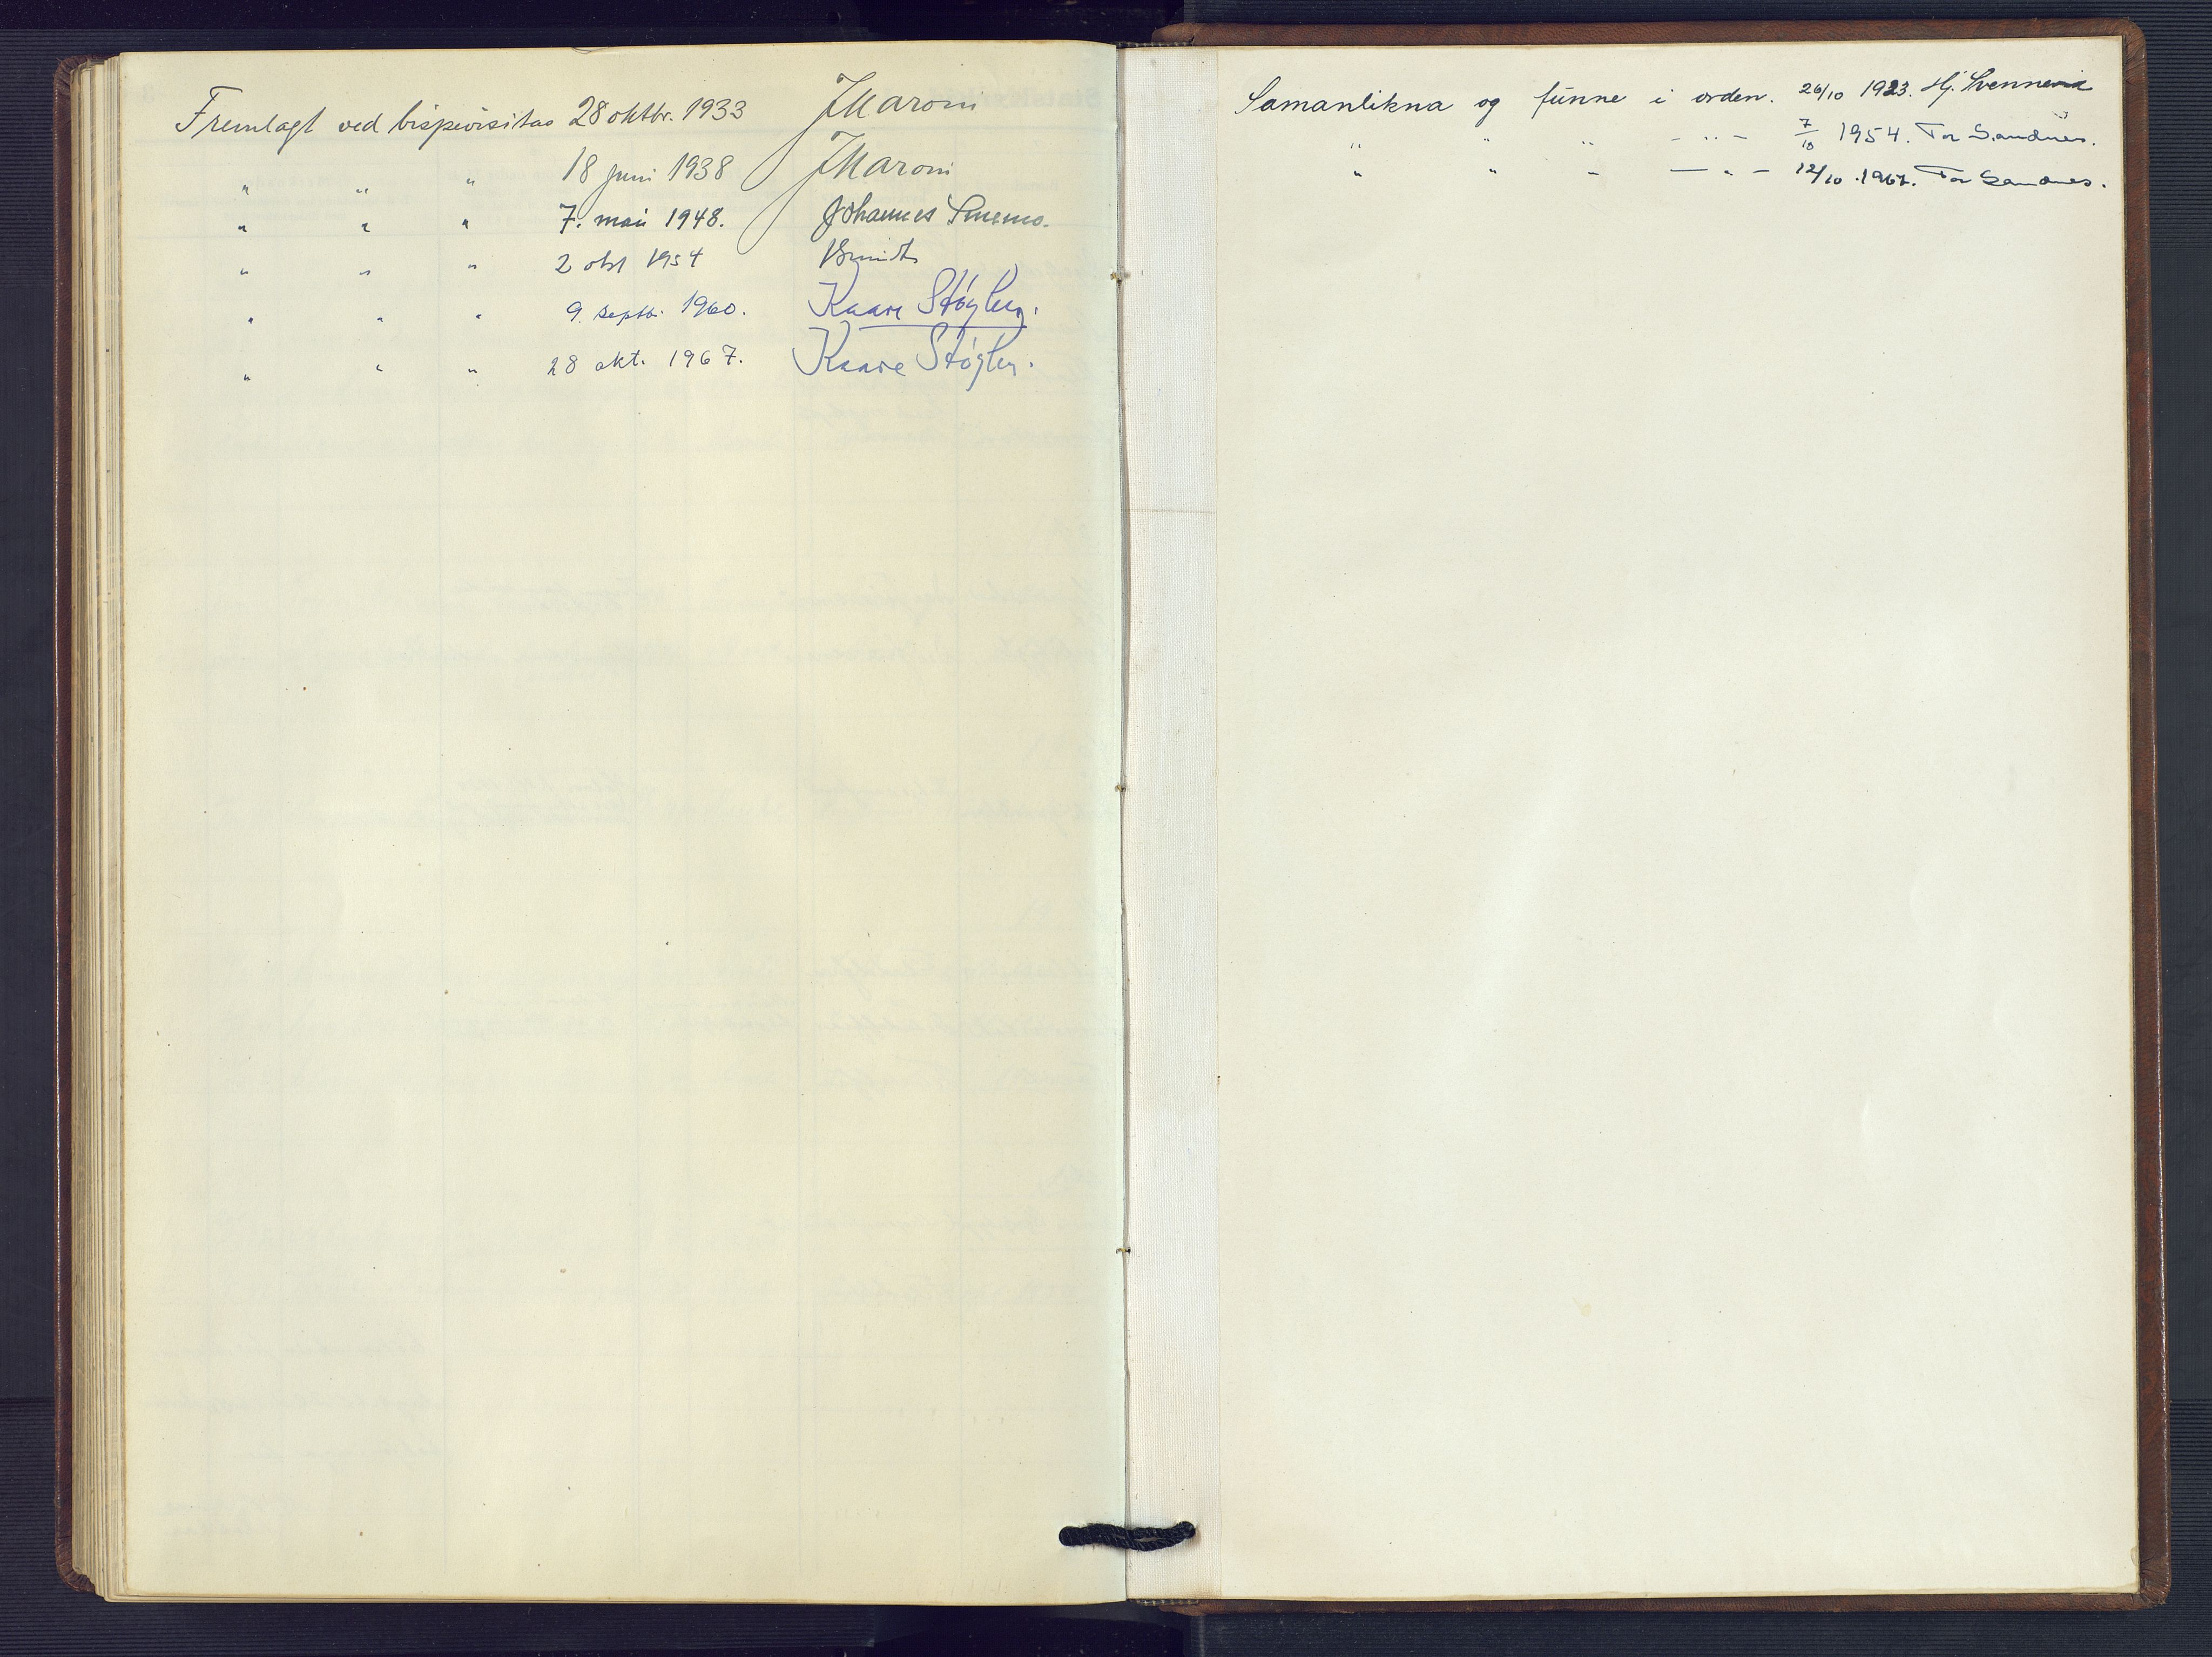 Fremlagt ved bispevisitas 28 oktbr. 1933 JMaroni
" " " 18 juni 1938 JMaroni
" " " 7. mai 1948. Johannes Smemo.
" " " 2 okt 1954
" " " 9. septbr. 1960. Kaare Støylen.
" " " 28 okt. 1967. Kaare Støylen.
Samanlikna og funne i orden. 26/10 1923. Hj. Svennevik
" " " - " - 7/10 1954. Tor Sandnes.
" " " — " — 12/10 1967. Tor Sandnes.